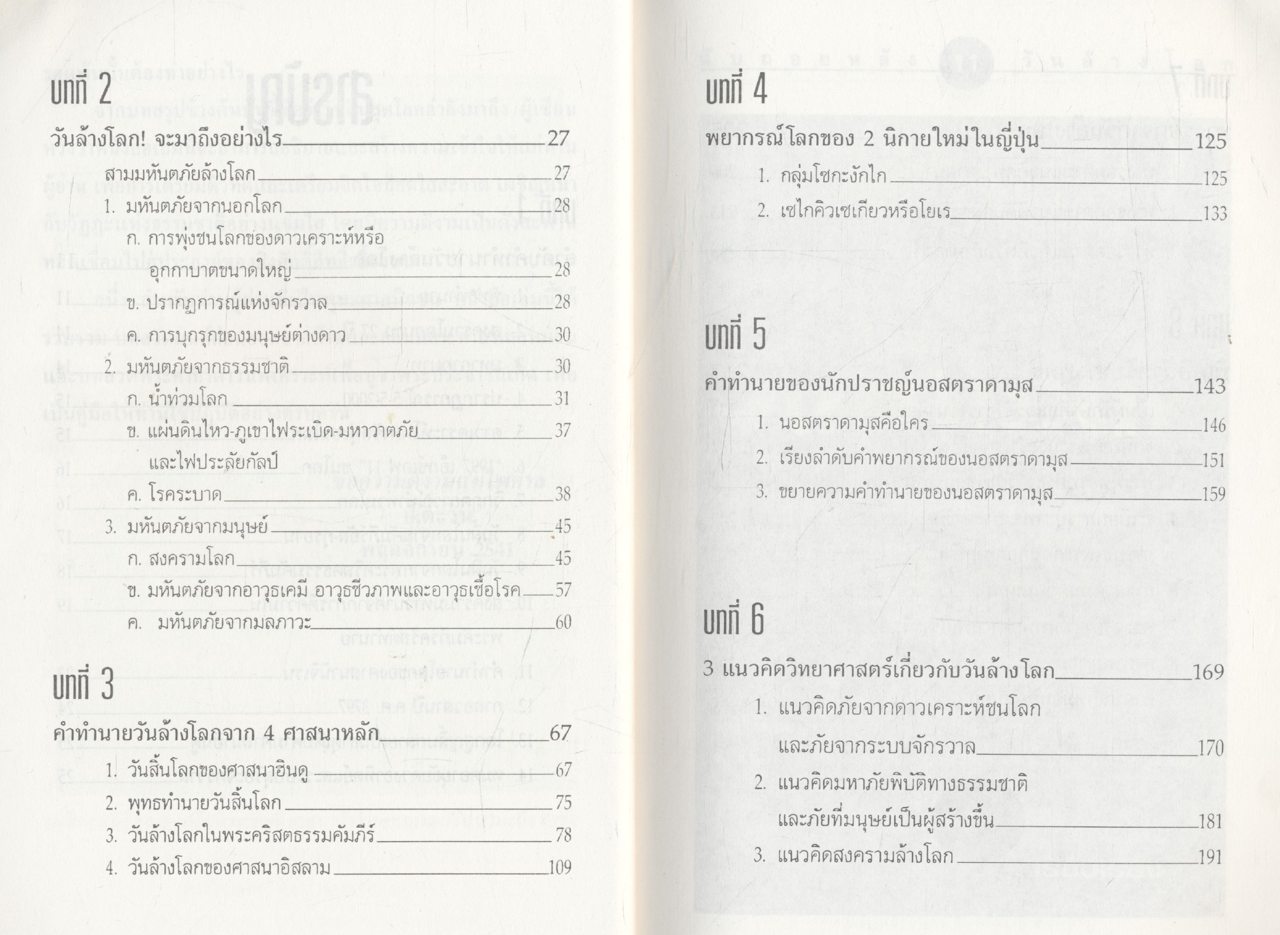 บทที่ 2
วันล้างโลก! จะมาถึงอย่างไร 27
สามมหันตภัยล้างโลก 27
1. มหันตภัยจากนอกโลก 28
ก. การพุ่งชนโลกของดาวเคราะห์หรือ
อุกกาบาตขนาดใหญ่ 28
ข. ปรากฏการณ์แห่งจักรวาล 28
ค. การบุกรุกของมนุษย์ต่างดาว 30
2. มหันตภัยจากธรรมชาติ 30
ก. น้ำท่วมโลก 31
ข. แผ่นดินไหว-ภูเขาไฟระเบิด-มหาวาตภัย 37
และไฟประลัยกัลป์
ค. โรคระบาด 38
3. มหันตภัยจากมนุษย์ 45
ก. สงครามโลก 45
ข. มหันตภัยจากอาวุธเคมี อาวุธชีวภาพและอาวุธเชื้อโรค 57
ค. มหันตภัยจากมลภาวะ 60
บทที่ 3
คำทำนายวันล้างโลกจาก 4 ศาสนาหลัก 67
1. วันสิ้นโลกของศาสนาฮินดู 67
2. พุทธทำนายวันสิ้นโลก 75
3. วันล้างโลกในพระคริสตธรรมคัมภีร์ 78
4. วันล้างโลกของศาสนาอิสลาม 109
บทที่ 4
พยากรณ์โลกของ 2 นิกายใหม่ในญี่ปุ่น 125
1. กลุ่มโซกะงักไก 125
2. เซไกคิวเซเกียวหรือโยเร 133
บทที่ 5
คำทำนายของนักปราชญ์นอสตราดามุส 143
1. นอสตราดามุสคือใคร 146
2. เรียงลำดับคำพยากรณ์ของนอสตราดามุส 151
3. ขยายความคำทำนายของนอสตราดามุส 159
บทที่ 6
3 แนวคิดวิทยาศาสตร์เกี่ยวกับวันล้างโลก 169
1. แนวคิดภัยจากดาวเคราะห์ชนโลก
และภัยจากระบบจักรวาล 170
2. แนวคิดมหาภัยพิบัติทางธรรมชาติ
และภัยที่มนุษย์เป็นผู้สร้างขึ้น 181
3. แนวคิดสงครามล้างโลก 191